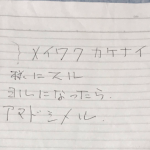 ) メイワク カケナイ
殺にスル
ヨルになったら.
アマドシメル.